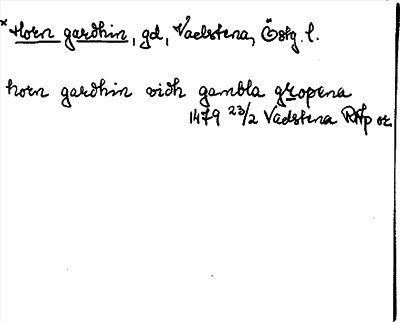 * Horn gardhin, gd, Vadstena, Östg. l.
horn gardhin vidh gambla gropena
1479 23/2 Vadstena RAp or.